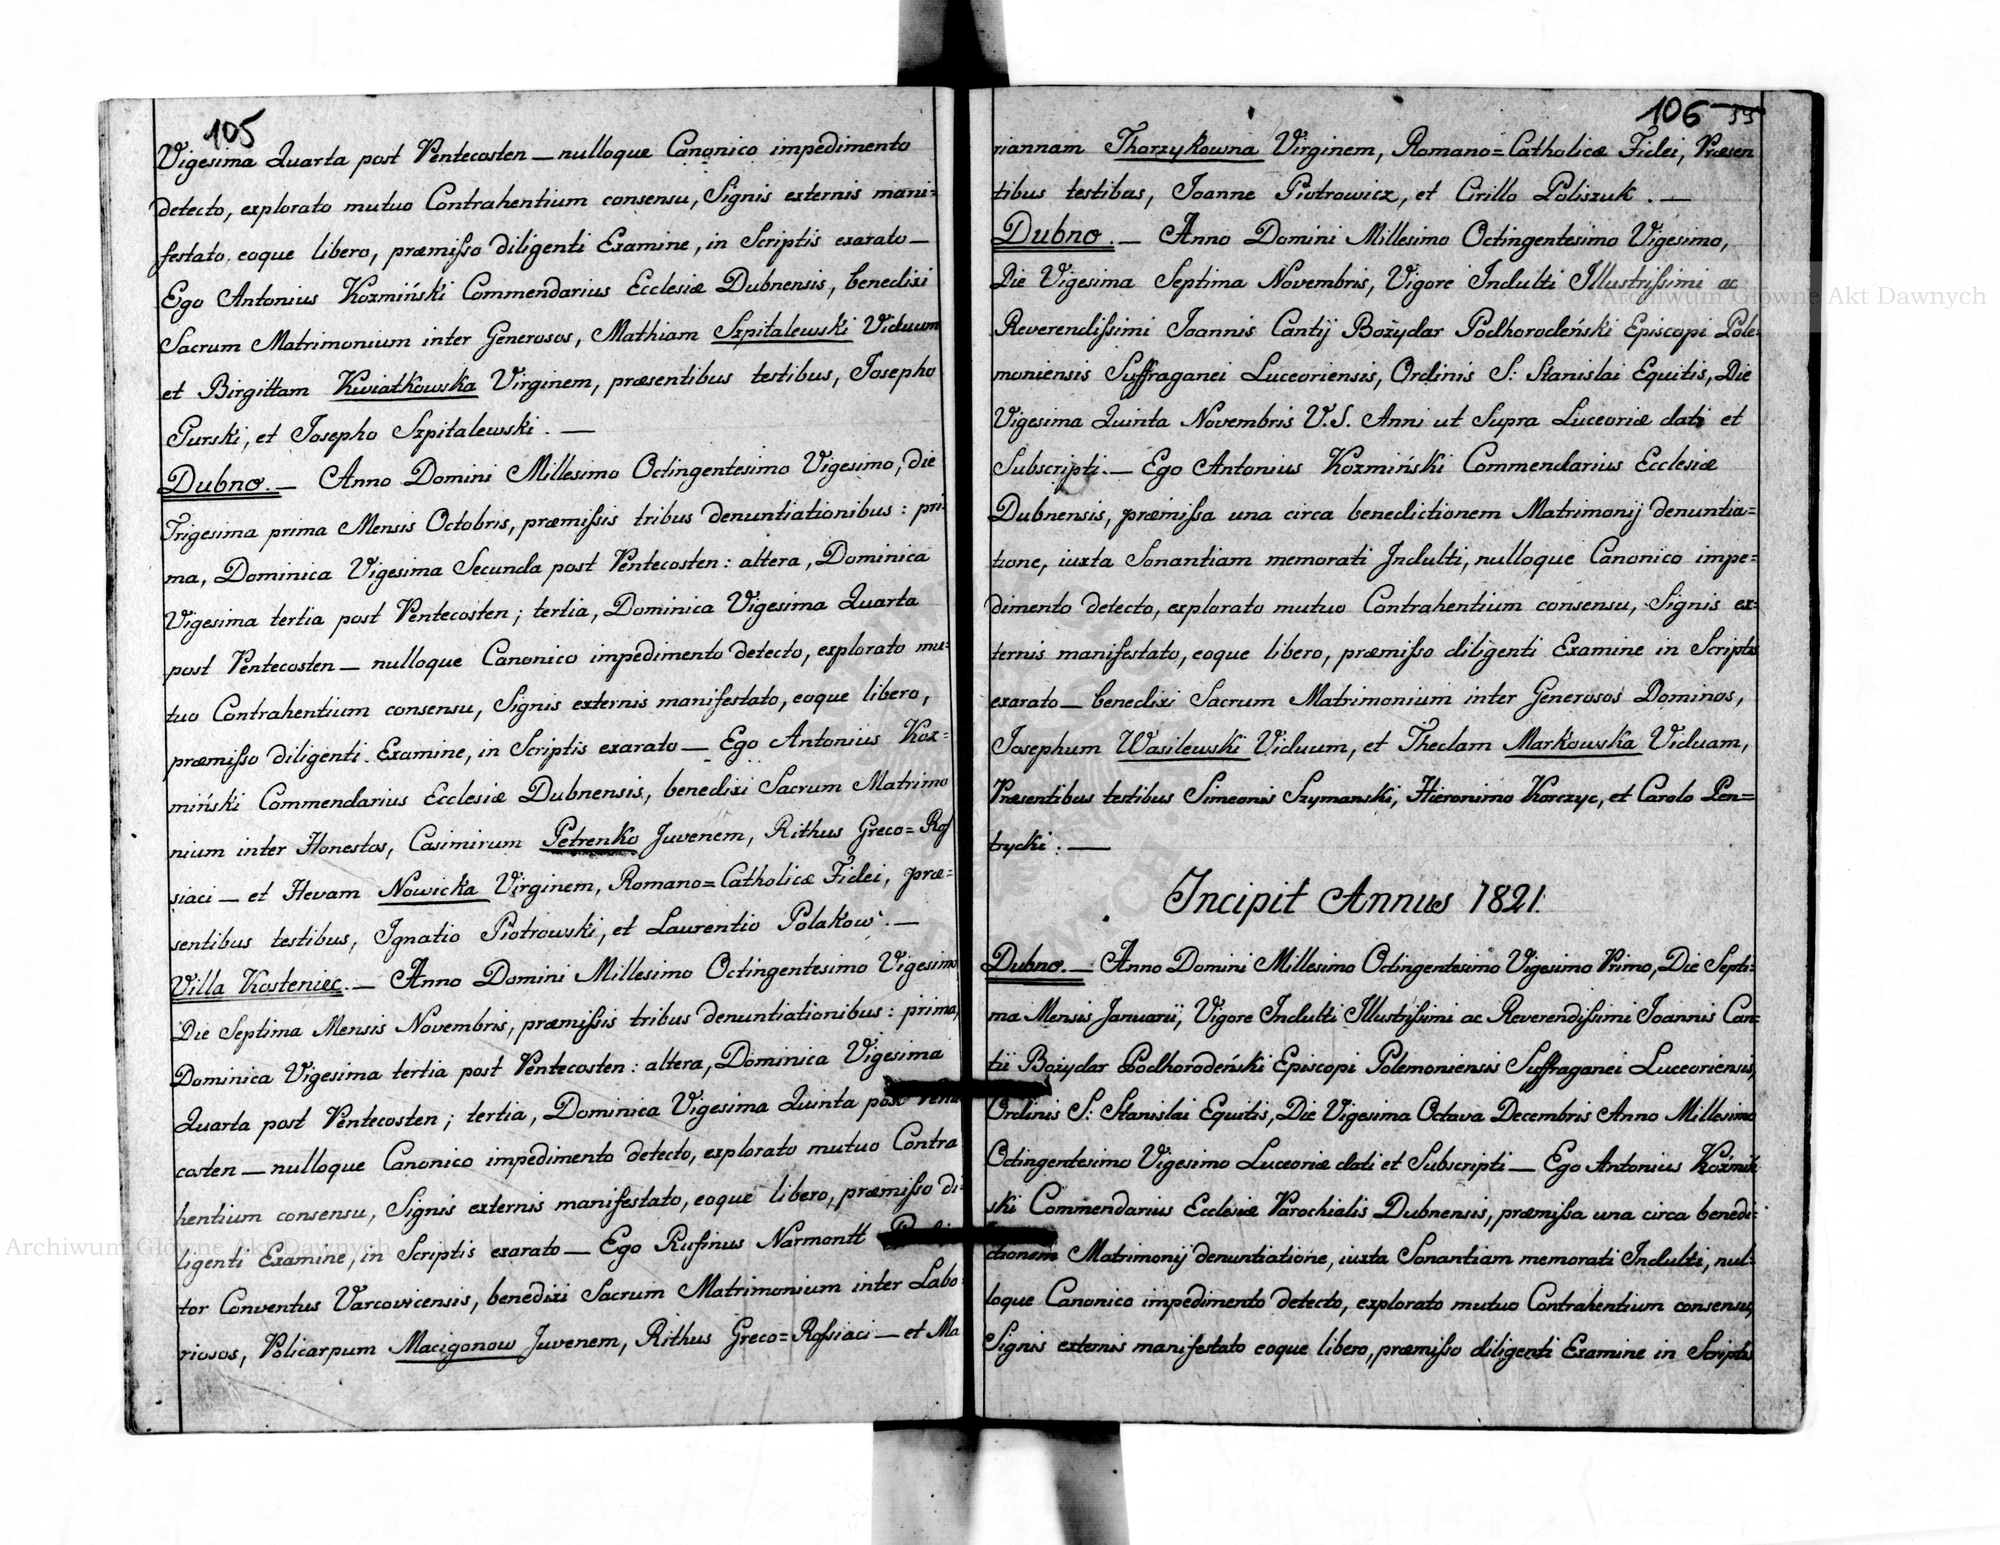 105
Vigesima Quarta post Pentecosten — nulloque Canonico impedimento
detecto, explorato mutuo Contrahentium consensu, Signis externis mani=
festato, eoque libero, præmisso diligenti Examine, in Scriptis exarato —
Ego Antonius Kozmiński Commendarius Ecclesiæ Dubnensis, benedixi
Sacrum Matrimonium inter Generosos, Mathiam Szpitalewski Viduum
et Birgittam Kwiatkowska Virginem, præsentibus testibus, Josepho
Gurski, et Josepho Szpitalewski. —
Dubno. — Anno Domini Millesimo Octingentesimo Vigesimo, die
Trigesima prima Mensis Octobris, præmissis tribus denuntiationibus: pri=
ma, Dominica Vigesima Secunda post Pentecosten: altera, Dominica
Vigesima tertia post Pentecosten; tertia, Dominica Vigesima Quarta
post Pentecosten — nulloque Canonico impedimento detecto, explorato mu=
tuo Contrahentium consensu, Signis externis manifestato, eoque libero,
præmisso diligenti Examine, in Scriptis exarato — Ego Antonius Koz=
miński Commendarius Ecclesiæ Dubnensis, benedixi Sacrum Matrimo
nium inter Honestos, Casimirum Petrenko Juvenem, Rithus Greco=Ros
siaci — et Hevam Nowicka Virginem, Romano=Catholicæ Fidei, præ=
sentibus testibus, Ignatio Piotrowski, et Laurentio Polakow. —
Villa Kosteniec. — Anno Domini Millesimo Octingentesimo Vigesimo
Die Septima Mensis Novembris, præmissis tribus denuntiationibus: prima,
Dominica Vigesima tertia post Pentecosten: altera, Dominica Vigesima
Quarta post Pentecosten; tertia, Dominica Vigesima Quinta post Pent
costen — nulloque Canonico impedimento detecto, explorato mutuo Contra
hentium consensu, Signis externis manifestato, eoque libero, præmisso di=
ligenti Examine, in Scriptis exarato — Ego Rufinus Narmontt
tor Conventus Varcovicensis, benedixi Sacrum Matrimonium inter Labo=
riosos, Policarpum Macigonow Juvenem, Rithus Greco=Rossiaci — et Ma
106 55
riannam Thorzykowna Virginem, Romano=Catholicæ Fidei, Præsen
tibus testibus, Joanne Piotrowicz, et Cirillo Poliszuk. —
Dubno. — Anno Domini Millesimo Octingentesimo Vigesimo,
Die Vigesima Septima Novembris, Vigore Indulti Illustrissimi ac
Reverendissimi Joannis Cantij Bożydar Podhorodeński Episcopi Pole=
moniensis Suffraganei Luceoriensis, Ordinis S: Stanislai Equitis, Die
Vigesima Quinta Novembris V.S. Anni ut Supra Luceoriæ dati et
Subscripti. — Ego Antonius Kozmiński Commendarius Ecclesiæ
Dubnensis, præmissa una circa benedictionem Matrimonij denuntia=
tione, iuxta Sonantiam memorati Indulti, nulloque Canonico impe=
dimento detecto, explorato mutuo Contrahentium consensu, Signis ex=
ternis manifestato, eoque libero, præmisso diligenti Examine in Scriptis
exarato — benedixi Sacrum Matrimonium inter Generosos Dominos,
Josephum Wasilewski Viduum, et Theclam Markowska Viduam,
Præsentibus testibus Simeonis Szymanski, Hieronimo Korczyc, et Carolo Pen=
trycki. —
Incipit Annus 1821.
Dubno. — Anno Domini Millesimo Octingentesimo Vigesimo Primo, Die Septi=
ma Mensis Januarii, Vigore Indulti Illustrissimi ac Reverendissimi Joannis Can=
tii Bożydar Podhorodeński Episcopi Polemoniensis Suffraganei Luceoriensis,
Ordinis S: Stanislai Equitis, Die Vigesima Octava Decembris Anno Millesimo
Octingentesimo Vigesimo Luceoriæ dati et Subscripti — Ego Antonius Kozmiń
ski Commendarius Ecclesiæ Parochialis Dubnensis, præmissa una circa benedi=
ctionem Matrimonij denuntiatione, iuxta Sonantiam memorati Indulti, nul=
loque Canonico impedimento detecto, explorato mutuo Contrahentium consensu,
Signis externis manifestato eoque libero, præmisso diligenti Examine in Scriptis
Archiwum Główne Akt Dawnych
Archiwum Główne Akt Dawnych